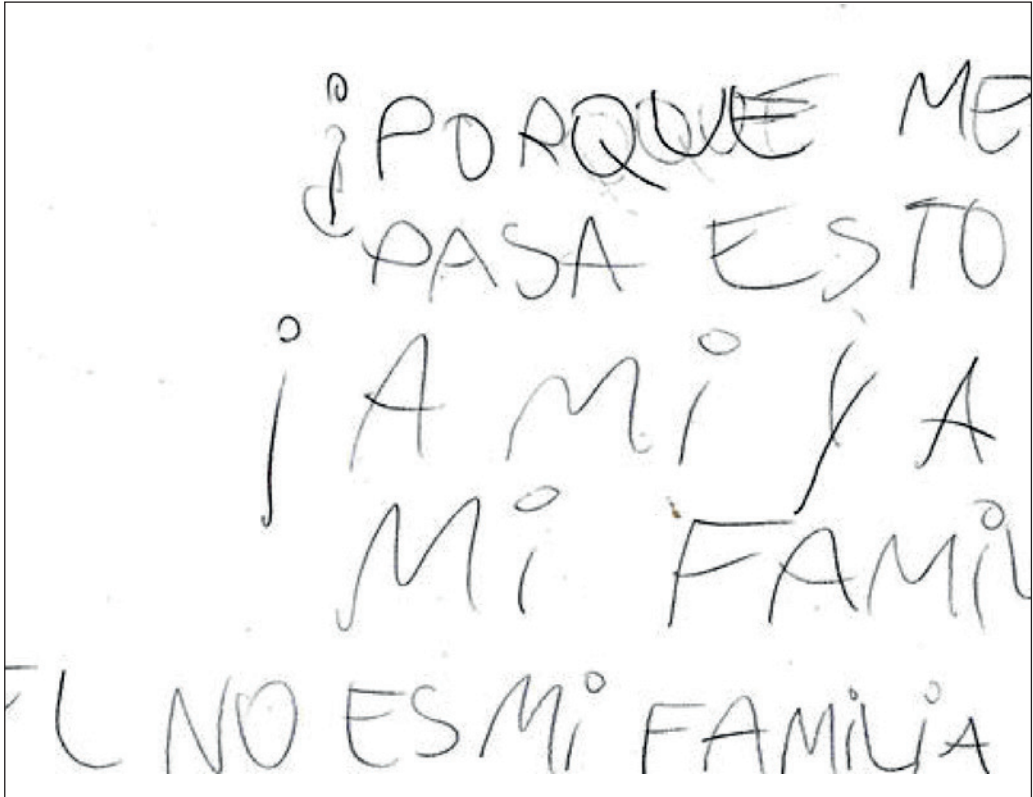 ¡PORQUE ME
PASA ESTO
¡A Mi Y A
Mi FAMiL
EL NO ES Mi FAMiLiA